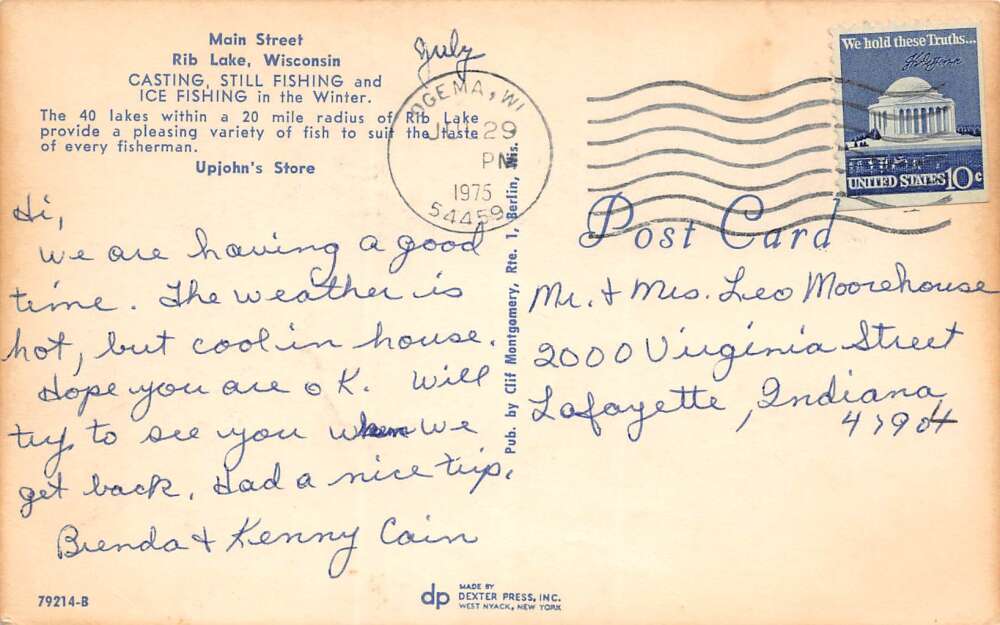 Main Street
Rib Lake, Wisconsin
CASTING, STILL FISHING and
ICE FISHING in the Winter.
The 40 lakes within a 20 mile radius of Rib Lake
provide a pleasing variety of fish to suit the taste
of every fisherman.
Upjohn's Store
July
OGEMA, WI
29
PM
1975
54459
We hold these Truths...
UNITED STATES 10c
Hi,
We are having a good
time. The weather is
hot, but cool in house.
Hope you are OK. Will
try to see you when we
get back. Had a nice trip.
Brenda & Kenny Cain
Pub. by Clif Montgomery, Rte. 1, Berlin, Wis.
Post Card
Mr. & Mrs. Leo Moorehouse
2000 Virginia Street
Lafayette, Indiana
47904
79214-B
dp
MADE BY
DEXTER PRESS, INC.
WEST NYACK, NEW YORK